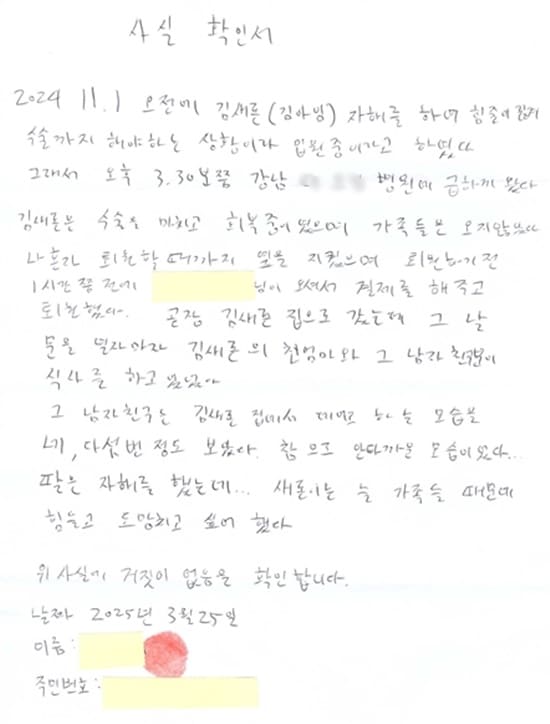 사실 확인서
2024 11.1 오전에 김새론(김아임) 자해를 하여 힘줄이
수술까지 해야하는 상황이라 입원중이라고 하였다
그래서 오후 3.30분쯤 강남 병원에 급하게 갔다
김새론은 수술을 마치고 회복중이었으며 가족들은 오지않았다
나혼자 퇴원할때까지 옆을 지켰으며 퇴원하기전
1시간쯤 전에 님이 오셔서 결제를 해주고
퇴원했다. 곧장 김새론 집으로 갔는데 그 날
문을 열자마자 김새론의 친엄마와 그 남자친구분이
식사를 하고 있었다
그 남자친구는 김새론 집에서 하는 모습을
네, 다섯번 정도 보았다. 참으로 안타까운 모습이었다...
팔은 자해를 했는데... 새론이는 늘 가족들 때문에
힘들고 도망치고 싶어 했다
위 사실에 거짓이 없음을 확인합니다.
날짜 2025년 3월25일
이름:
주민번호: